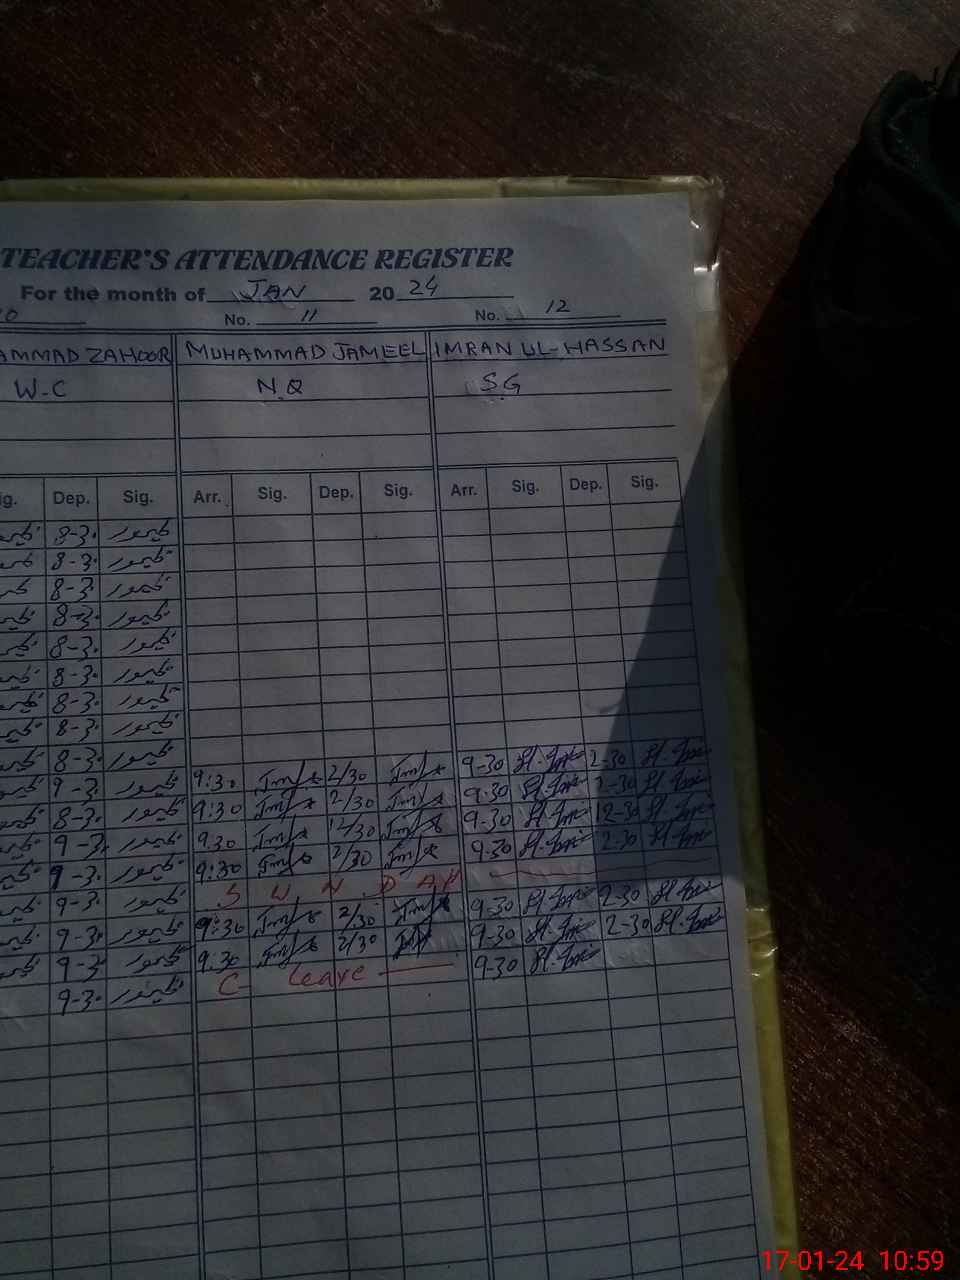 TEACHER'S ATTENDANCE REGISTER
For the month of JAN 2024
No. 11 No. 12
AMMAD ZAHOOR MUHAMMAD JAMEEL IMRAN UL-HASSAN
W-C N.Q S.G
ig. Dep. Sig. Arr. Sig. Dep. Sig. Arr. Sig. Dep. Sig.
8-30 ظہور
8-30 ظہور
8-30 ظہور
8-30 ظہور
8-30 ظہور
8-30 ظہور
8-30 ظہور
8-30 ظہور
8-30 ظہور 9-30 2-30
9-30 ظہور 9:30 2/30 9-30 2-30
8-30 ظہور 9:30 2/30 9-30 12-30
9-30 ظہور 9:30 12/30 9-30 2-30
9-30 ظہور 9:30 2/30
9-30 ظہور S U N D A Y 9-30 2-30
9-30 ظہور 9:30 2/30 9-30 2-30
9-30 ظہور 9:30 2/30 9-30
9-30 ظہور C- Leave
17-01-24 10:59